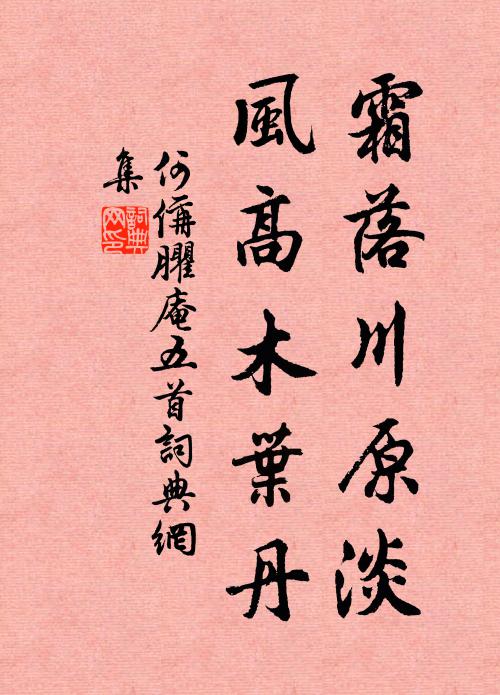 霜落川原淡
風高木葉丹
何偁臞庵五首詞典網
集
詞典
网印